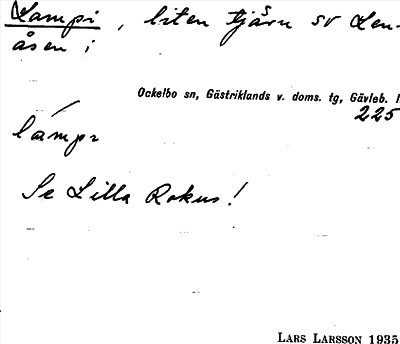 Lampi, liten tjärn sv Len-
åsen i
Ockelbo sn, Gästriklands v. doms. tg, Gävleb. l
225
Se Lilla Rokus!
LARS LARSSON 1935